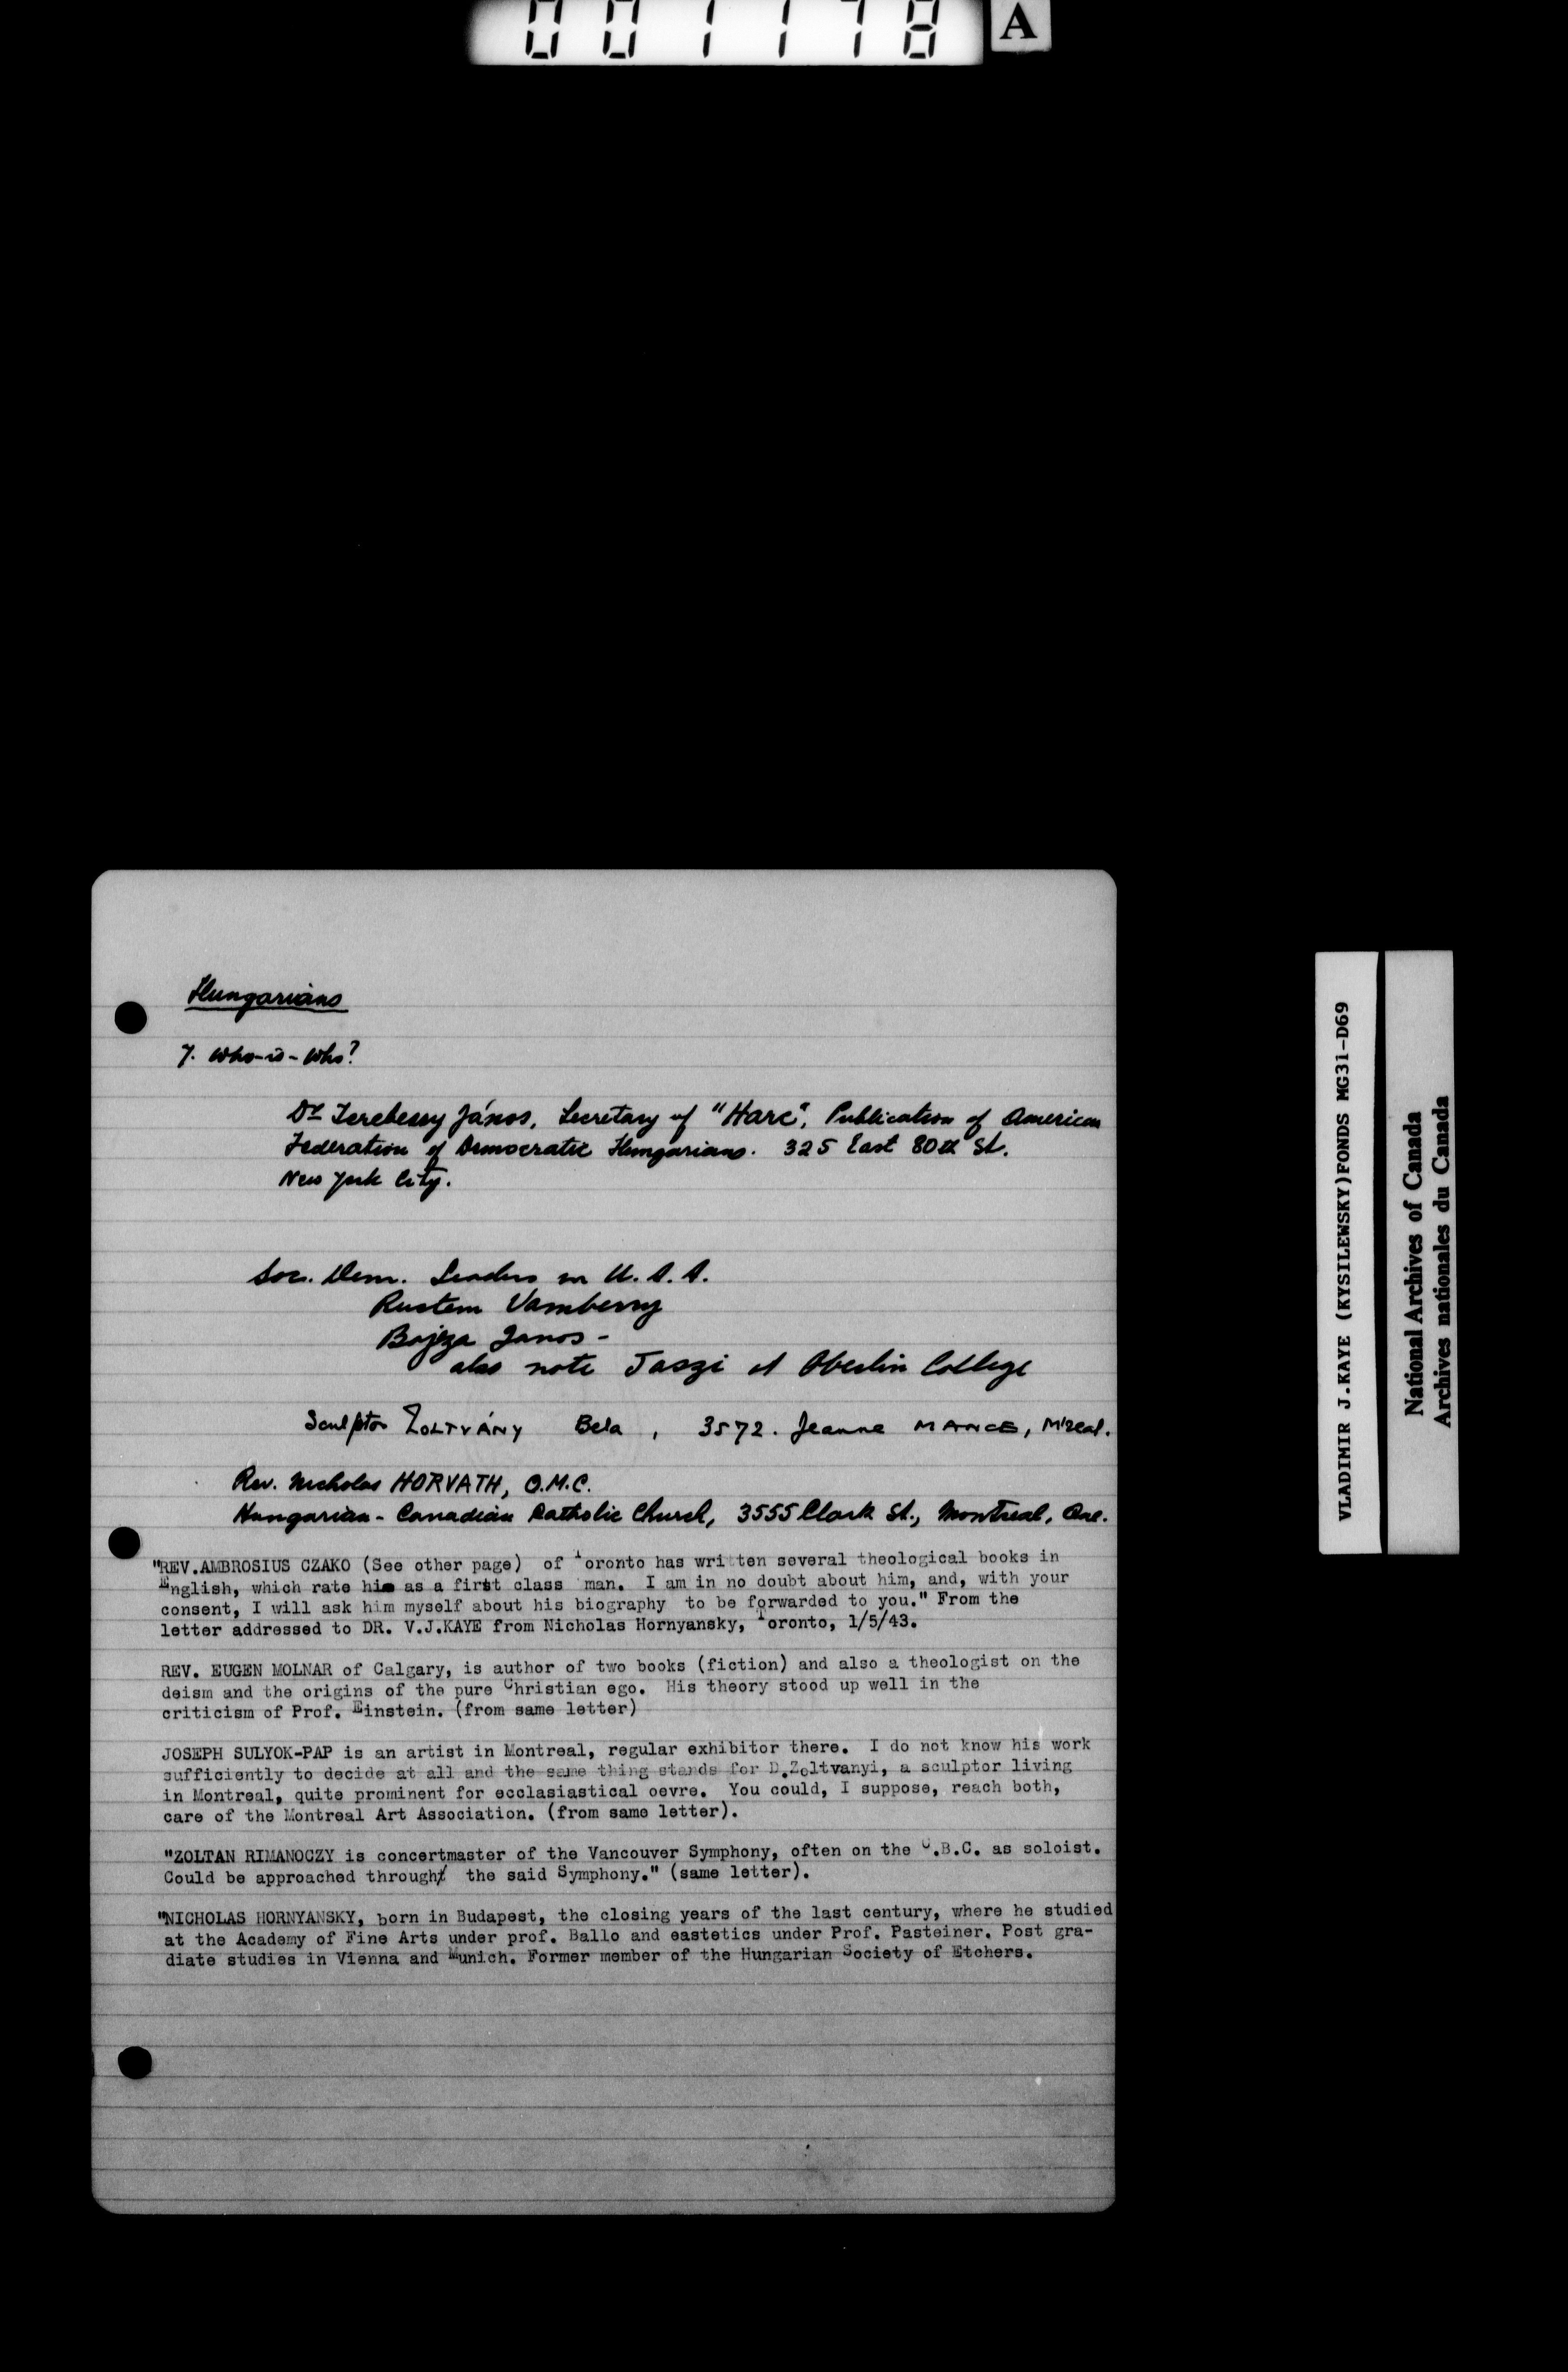 001178 A
Hungarians
7. Who-is-Who?
Dr Terebessy János, Secretary of "Harc", Publication of American
Federation of Democratic Hungarians. 325 East 80th St.
New York City.
Soc. Dem. Leaders in U.S.A.
Rustem Vamberry
Bojza Janos -
also note Jaszi at Oberlin College
Sculptor ZOLTVÁNY Bela, 3572. Jeanne MANCE, M'real.
Rev. Nicholas HORVATH, O.M.C.
Hungarian-Canadian Catholic Church, 3555 Clark St., Montreal, Que.
"REV.AMBROSIUS CZAKO (See other page) of Toronto has written several theological books in
English, which rate him as a first class man. I am in no doubt about him, and, with your
consent, I will ask him myself about his biography to be forwarded to you." From the
letter addressed to DR. V.J.KAYE from Nicholas Hornyansky, Toronto, 1/5/43.
REV. EUGEN MOLNAR of Calgary, is author of two books (fiction) and also a theologist on the
deism and the origins of the pure Christian ego. His theory stood up well in the
criticism of Prof. Einstein. (from same letter)
JOSEPH SULYOK-PAP is an artist in Montreal, regular exhibitor there. I do not know his work
sufficiently to decide at all and the same thing stands for D.Zoltvanyi, a sculptor living
in Montreal, quite prominent for ecclasiastical oevre. You could, I suppose, reach both,
care of the Montreal Art Association. (from same letter).
"ZOLTAN RIMANOCZY is concertmaster of the Vancouver Symphony, often on the C.B.C. as soloist.
Could be approached through the said Symphony." (same letter).
"NICHOLAS HORNYANSKY, born in Budapest, the closing years of the last century, where he studied
at the Academy of Fine Arts under prof. Ballo and eastetics under Prof. Pasteiner. Post gra-
diate studies in Vienna and Munich. Former member of the Hungarian Society of Etchers.
VLADIMIR J.KAYE (KYSILEWSKY)FONDS MG31-D69
National Archives of Canada
Archives nationales du Canada